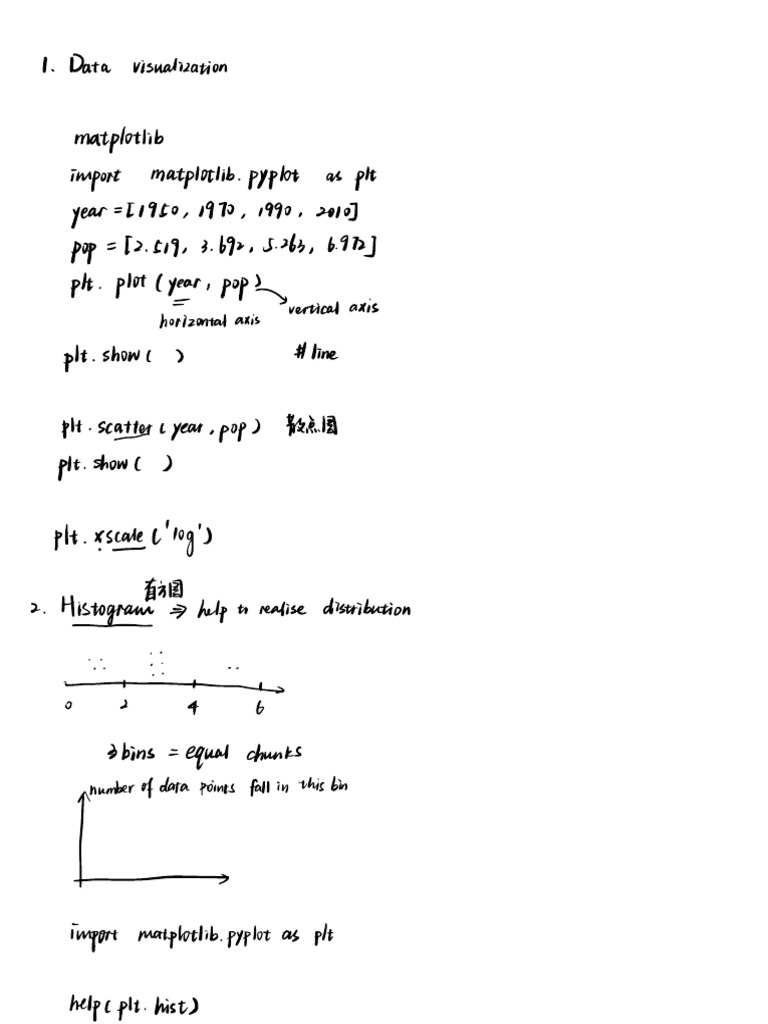 1. Data visualization
matplotlib
import matplotlib.pyplot as plt
year = [1950, 1970, 1990, 2010]
pop = [2.519, 3.692, 5.263, 6.972]
plt. plot (year, pop)
vertical axis
horizontal axis
plt. show ( )
# line
plt. scatter (year, pop) 散点图
plt. show ( )
plt. xscale ('log')
直方图
2. Histogram ⇒ help to realise distribution
0 2 4 6
3 bins = equal chunks
number of data points fall in this bin
import matplotlib.pyplot as plt
help (plt. hist)